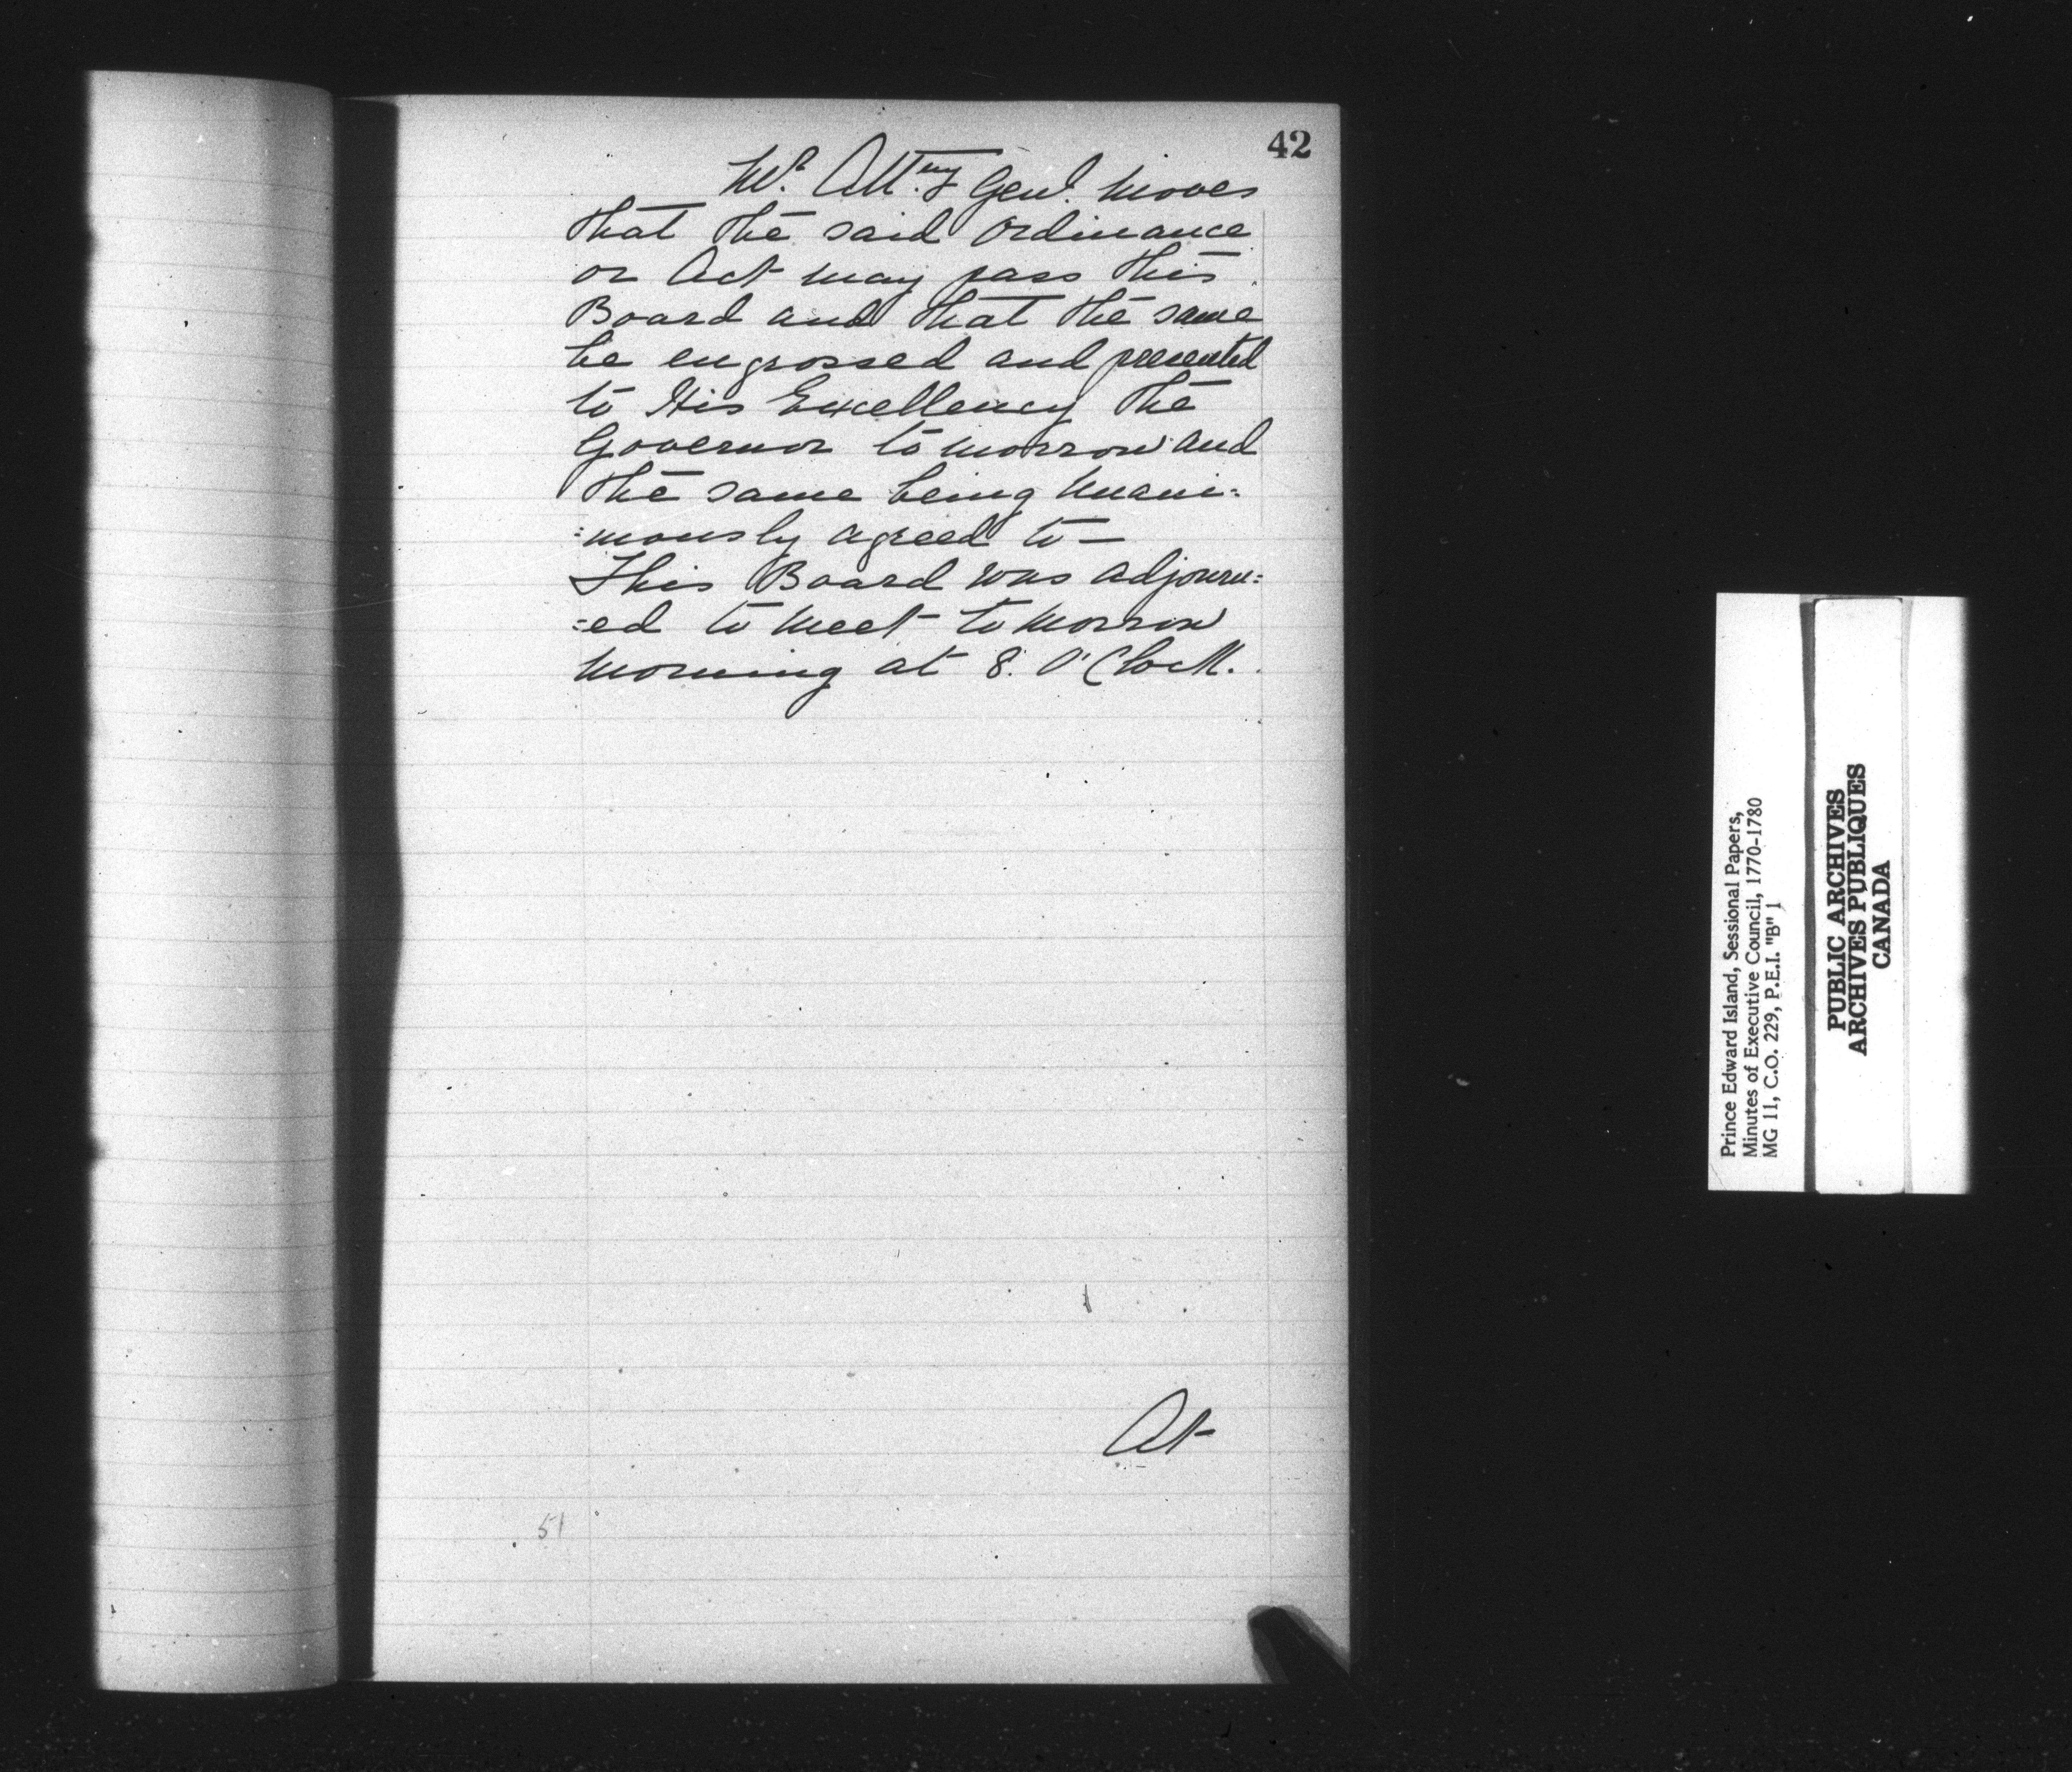 42
Mr. Attny Genl. moves
that the said Ordinance
or Act may pass this
Board and that the same
be engrossed and presented
to His Excellency the
Governor tomorrow and
the same being unani=
=mously agreed to —
This Board was adjourn=
=ed to meet tomorrow
morning at 8. O'Clock.
At
51
Prince Edward Island, Sessional Papers,
Minutes of Executive Council, 1770-1780
MG 11, C.O. 229, P.E.I. "B" 1
PUBLIC ARCHIVES
ARCHIVES PUBLIQUES
CANADA